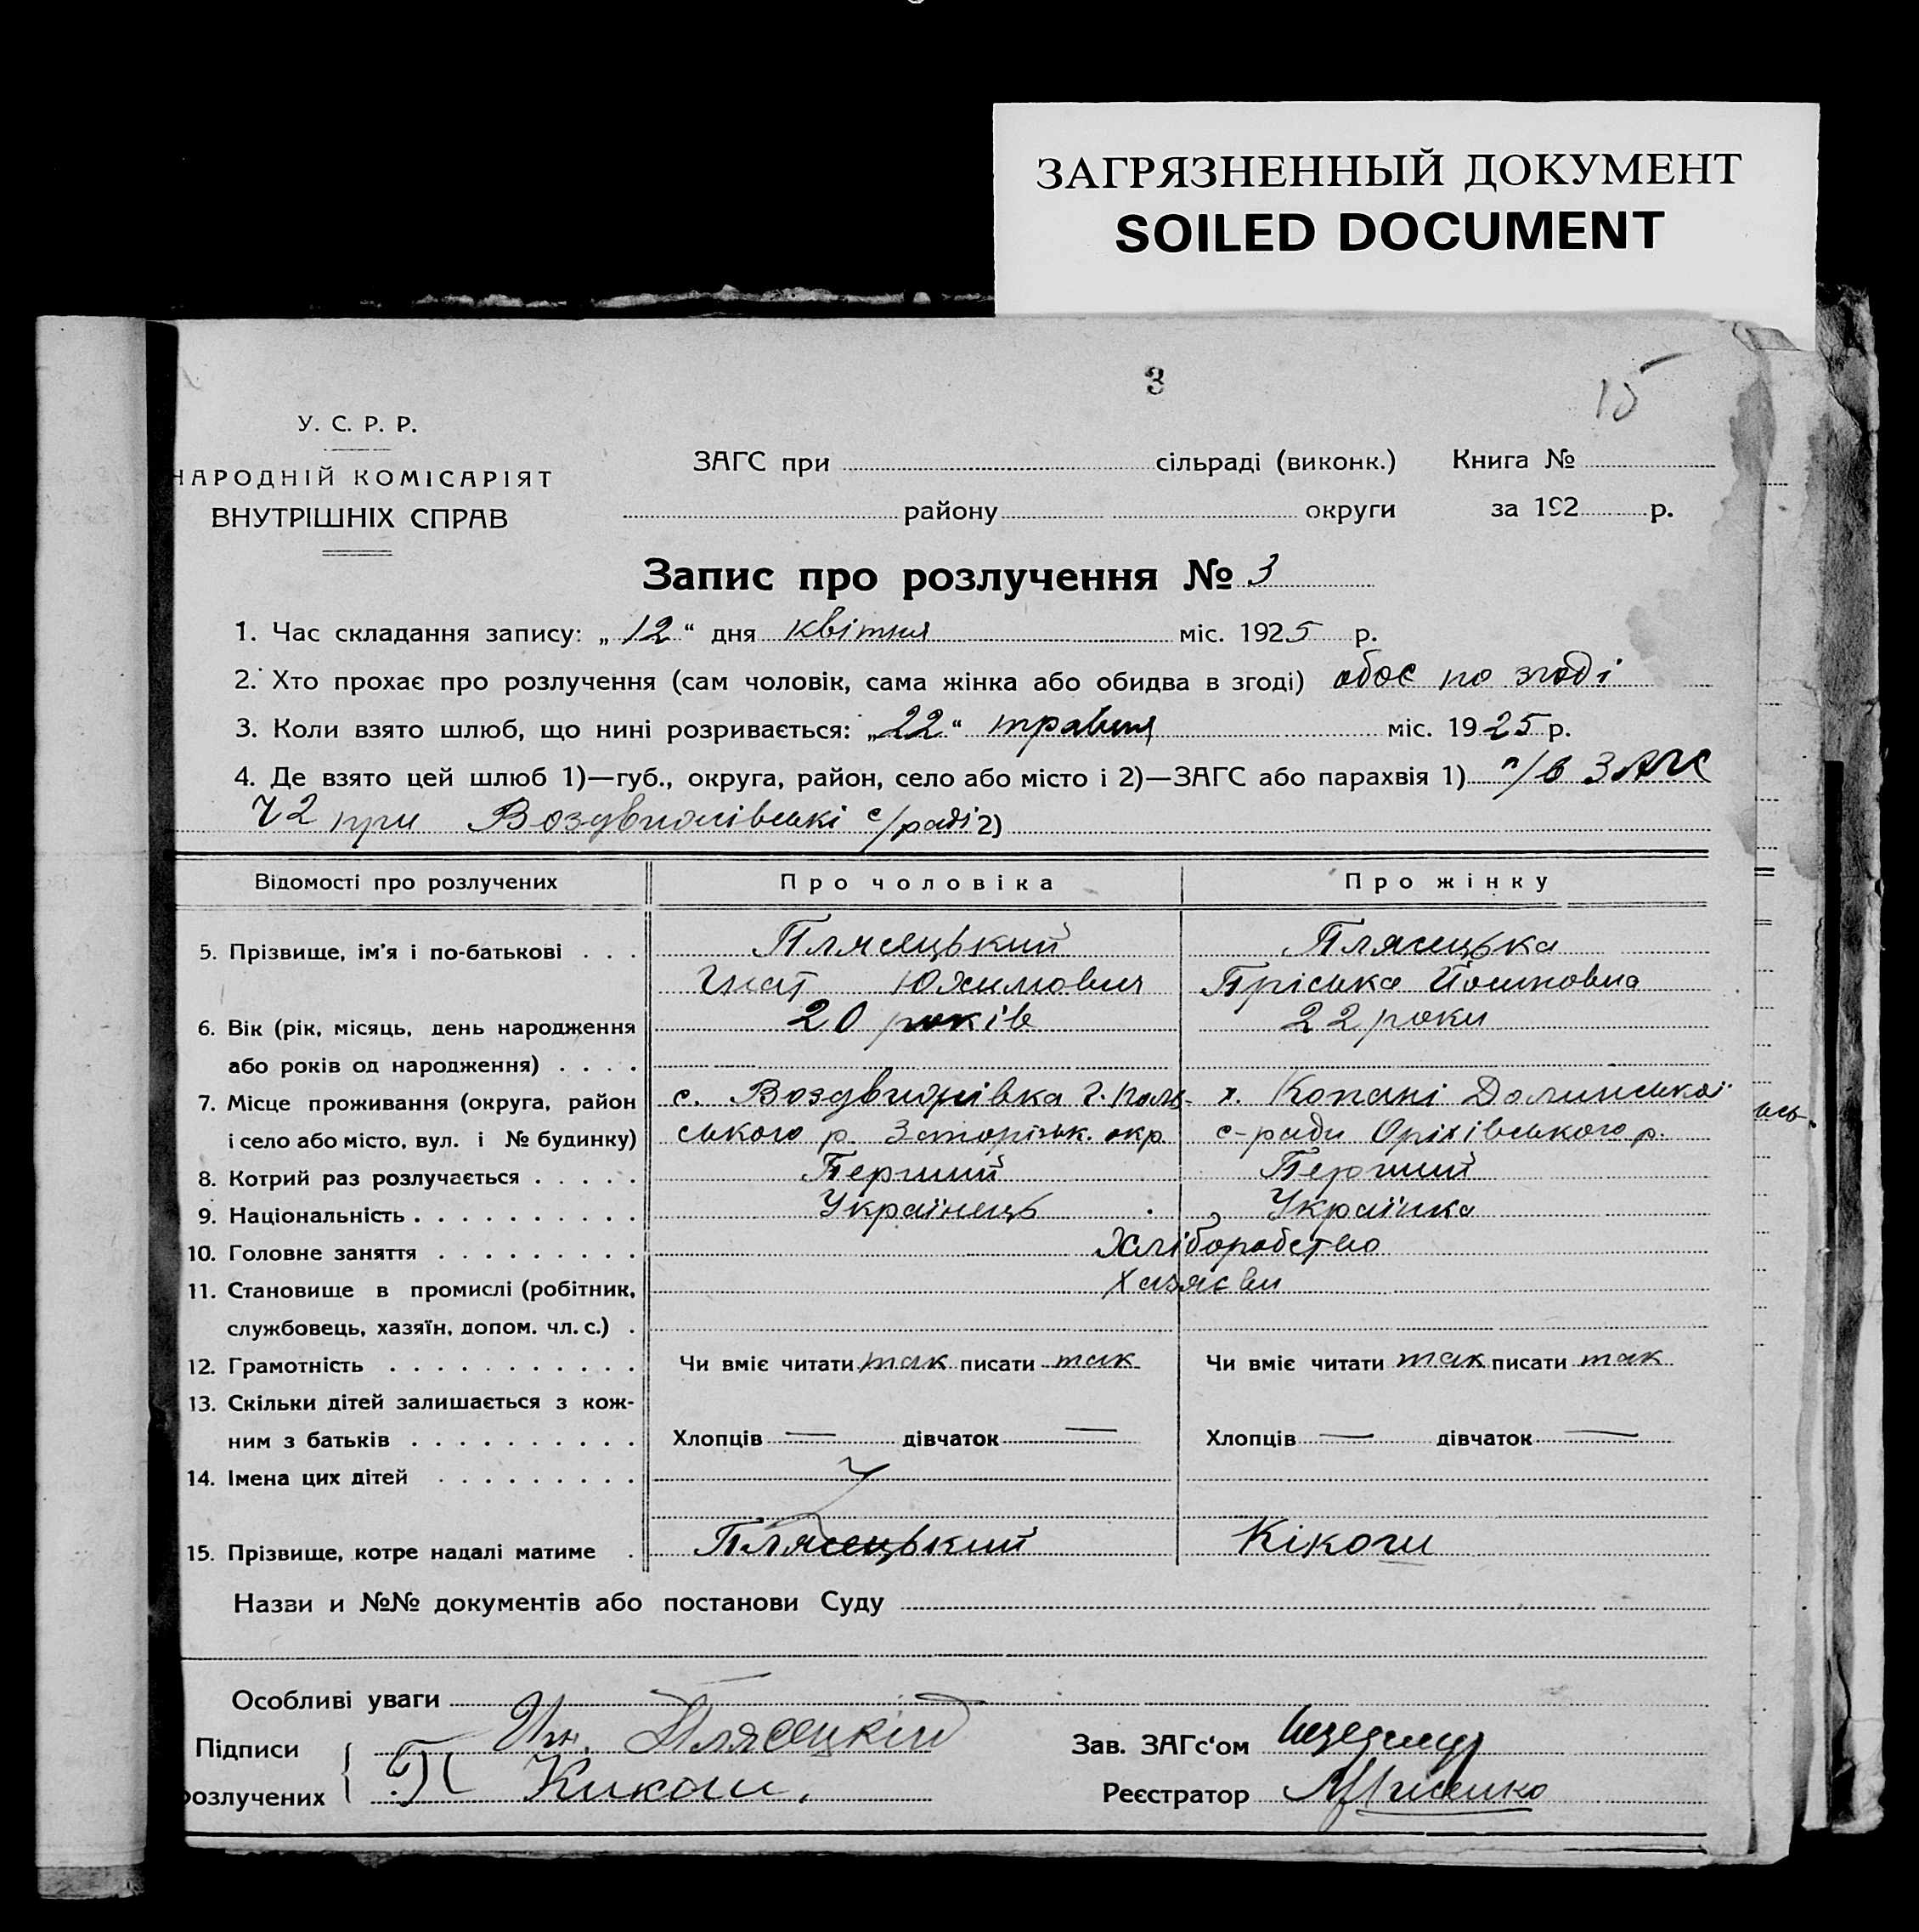 ЗАГРЯЗНЕННЫЙ ДОКУМЕНТ
SOILED DOCUMENT
3
15
У. С. Р. Р.
НАРОДНІЙ КОМІСАРІЯТ
ВНУТРІШНІХ СПРАВ
ЗАГС при сільраді (виконк.) Книга №
району округи за 192 р.
Запис про розлучення № 3
1. Час складання запису: „12“ дня квітня міс. 1925 р.
2. Хто прохає про розлучення (сам чоловік, сама жінка або обидва в згоді) обоє по згоді
3. Коли взято шлюб, що нині розривається: „22“ травня міс. 1925 р.
4. Де взято цей шлюб 1)—губ., округа, район, село або місто і 2)—ЗАГС або парахвія 1) п/в ЗАГС
при Воздвижівські с/раді 2)
Відомості про розлучених Про чоловіка Про жінку
5. Прізвище, ім'я і по-батькові . . . Плясецький Плясецька
Гнат Юхимович Пріська
6. Вік (рік, місяць, день народження 20 років 22 роки
або років од народження) . . . .
7. Місце проживання (округа, район с. Воздвижівка х. Копані Долинської
і село або місто, вул. і № будинку) ського р. Запоріжк. окр. с-ради Оріхівського р.
8. Котрий раз розлучається . . . . . Перший Перший
9. Національність . . . . . . . . . . Українець Українка
10. Головне заняття . . . . . . . . . Хліборобство
11. Становище в промислі (робітник, Хазяєви
службовець, хазяїн, допом. чл. с.) .
12. Грамотність . . . . . . . . . . . Чи вміє читати так писати так Чи вміє читати так писати так
13. Скільки дітей залишається з кож-
ним з батьків . . . . . . . . . . Хлопців — дівчаток — Хлопців — дівчаток —
14. Імена цих дітей . . . . . . . . .
15. Прізвище, котре надалі матиме . Плясецький Кікоти
Назви и №№ документів або постанови Суду
Особливі уваги
Підписи Игн. Плясецкій Зав. ЗАГс‘ом
розлучених П Кикоти. Реєстратор